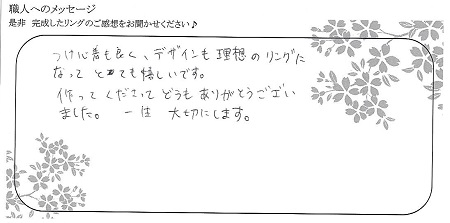 職人へのメッセージ
是非 完成したリングのご感想をお聞かせください♪
つけ心地も良く、デザインも理想のリングに
なって とても嬉しいです。
作って くださって どうも ありがとうござい
ました。 一生 大切にします。